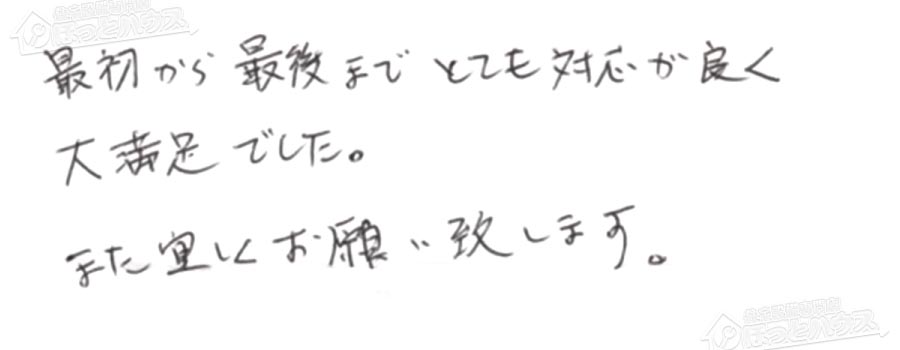 最初から最後までとても対応が良く
大満足でした。
また宜しくお願い致します。
ほっとハウス
ほっとハウス